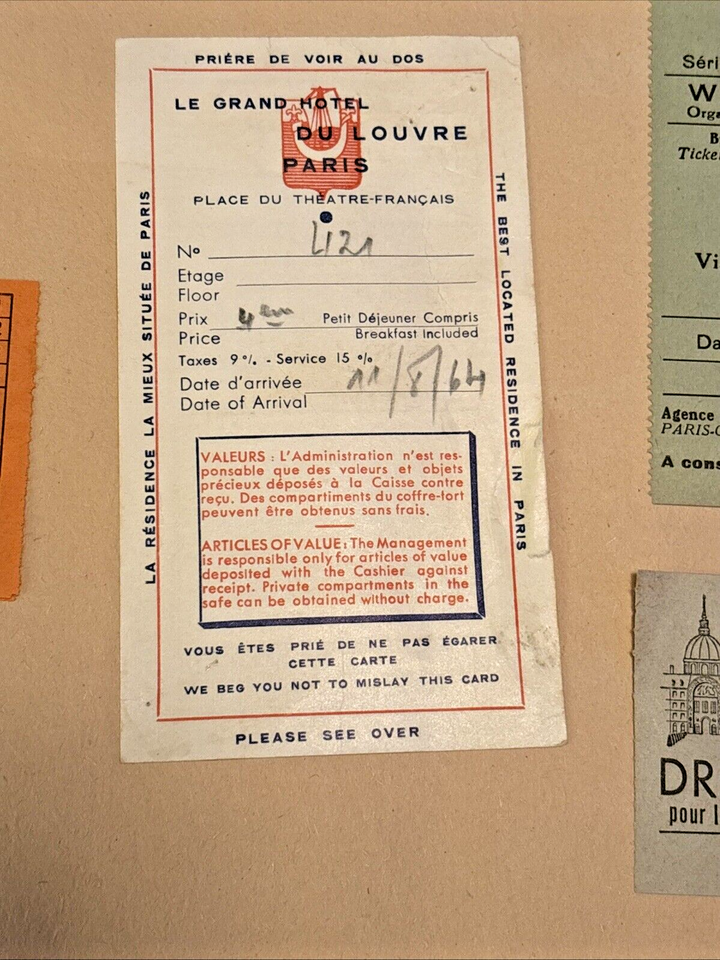 PRIÉRE DE VOIR AU DOS
LE GRAND HOTEL
DU LOUVRE
PARIS
PLACE DU THÉATRE-FRANÇAIS
No 421
Etage
Floor
Prix 4em Petit Déjeuner Compris
Price Breakfast Included
Taxes 9 % - Service 15 %
Date d'arrivée 11/8/64
Date of Arrival
VALEURS : L'Administration n'est res-
ponsable que des valeurs et objets
précieux déposés à la Caisse contre
reçu. Des compartiments du coffre-fort
peuvent être obtenus sans frais.
ARTICLES OF VALUE : The Management
is responsible only for articles of value
deposited with the Cashier against
receipt. Private compartments in the
safe can be obtained without charge.
VOUS ÊTES PRIÉ DE NE PAS ÉGARER
CETTE CARTE
WE BEG YOU NOT TO MISLAY THIS CARD
PLEASE SEE OVER
LA RÉSIDENCE LA MIEUX SITUÉE DE PARIS
THE BEST LOCATED RESIDENCE IN PARIS
Séri
W
Orga
B
Ticke
Vi
Da
Agence
PARIS-
A cons
DR
pour l